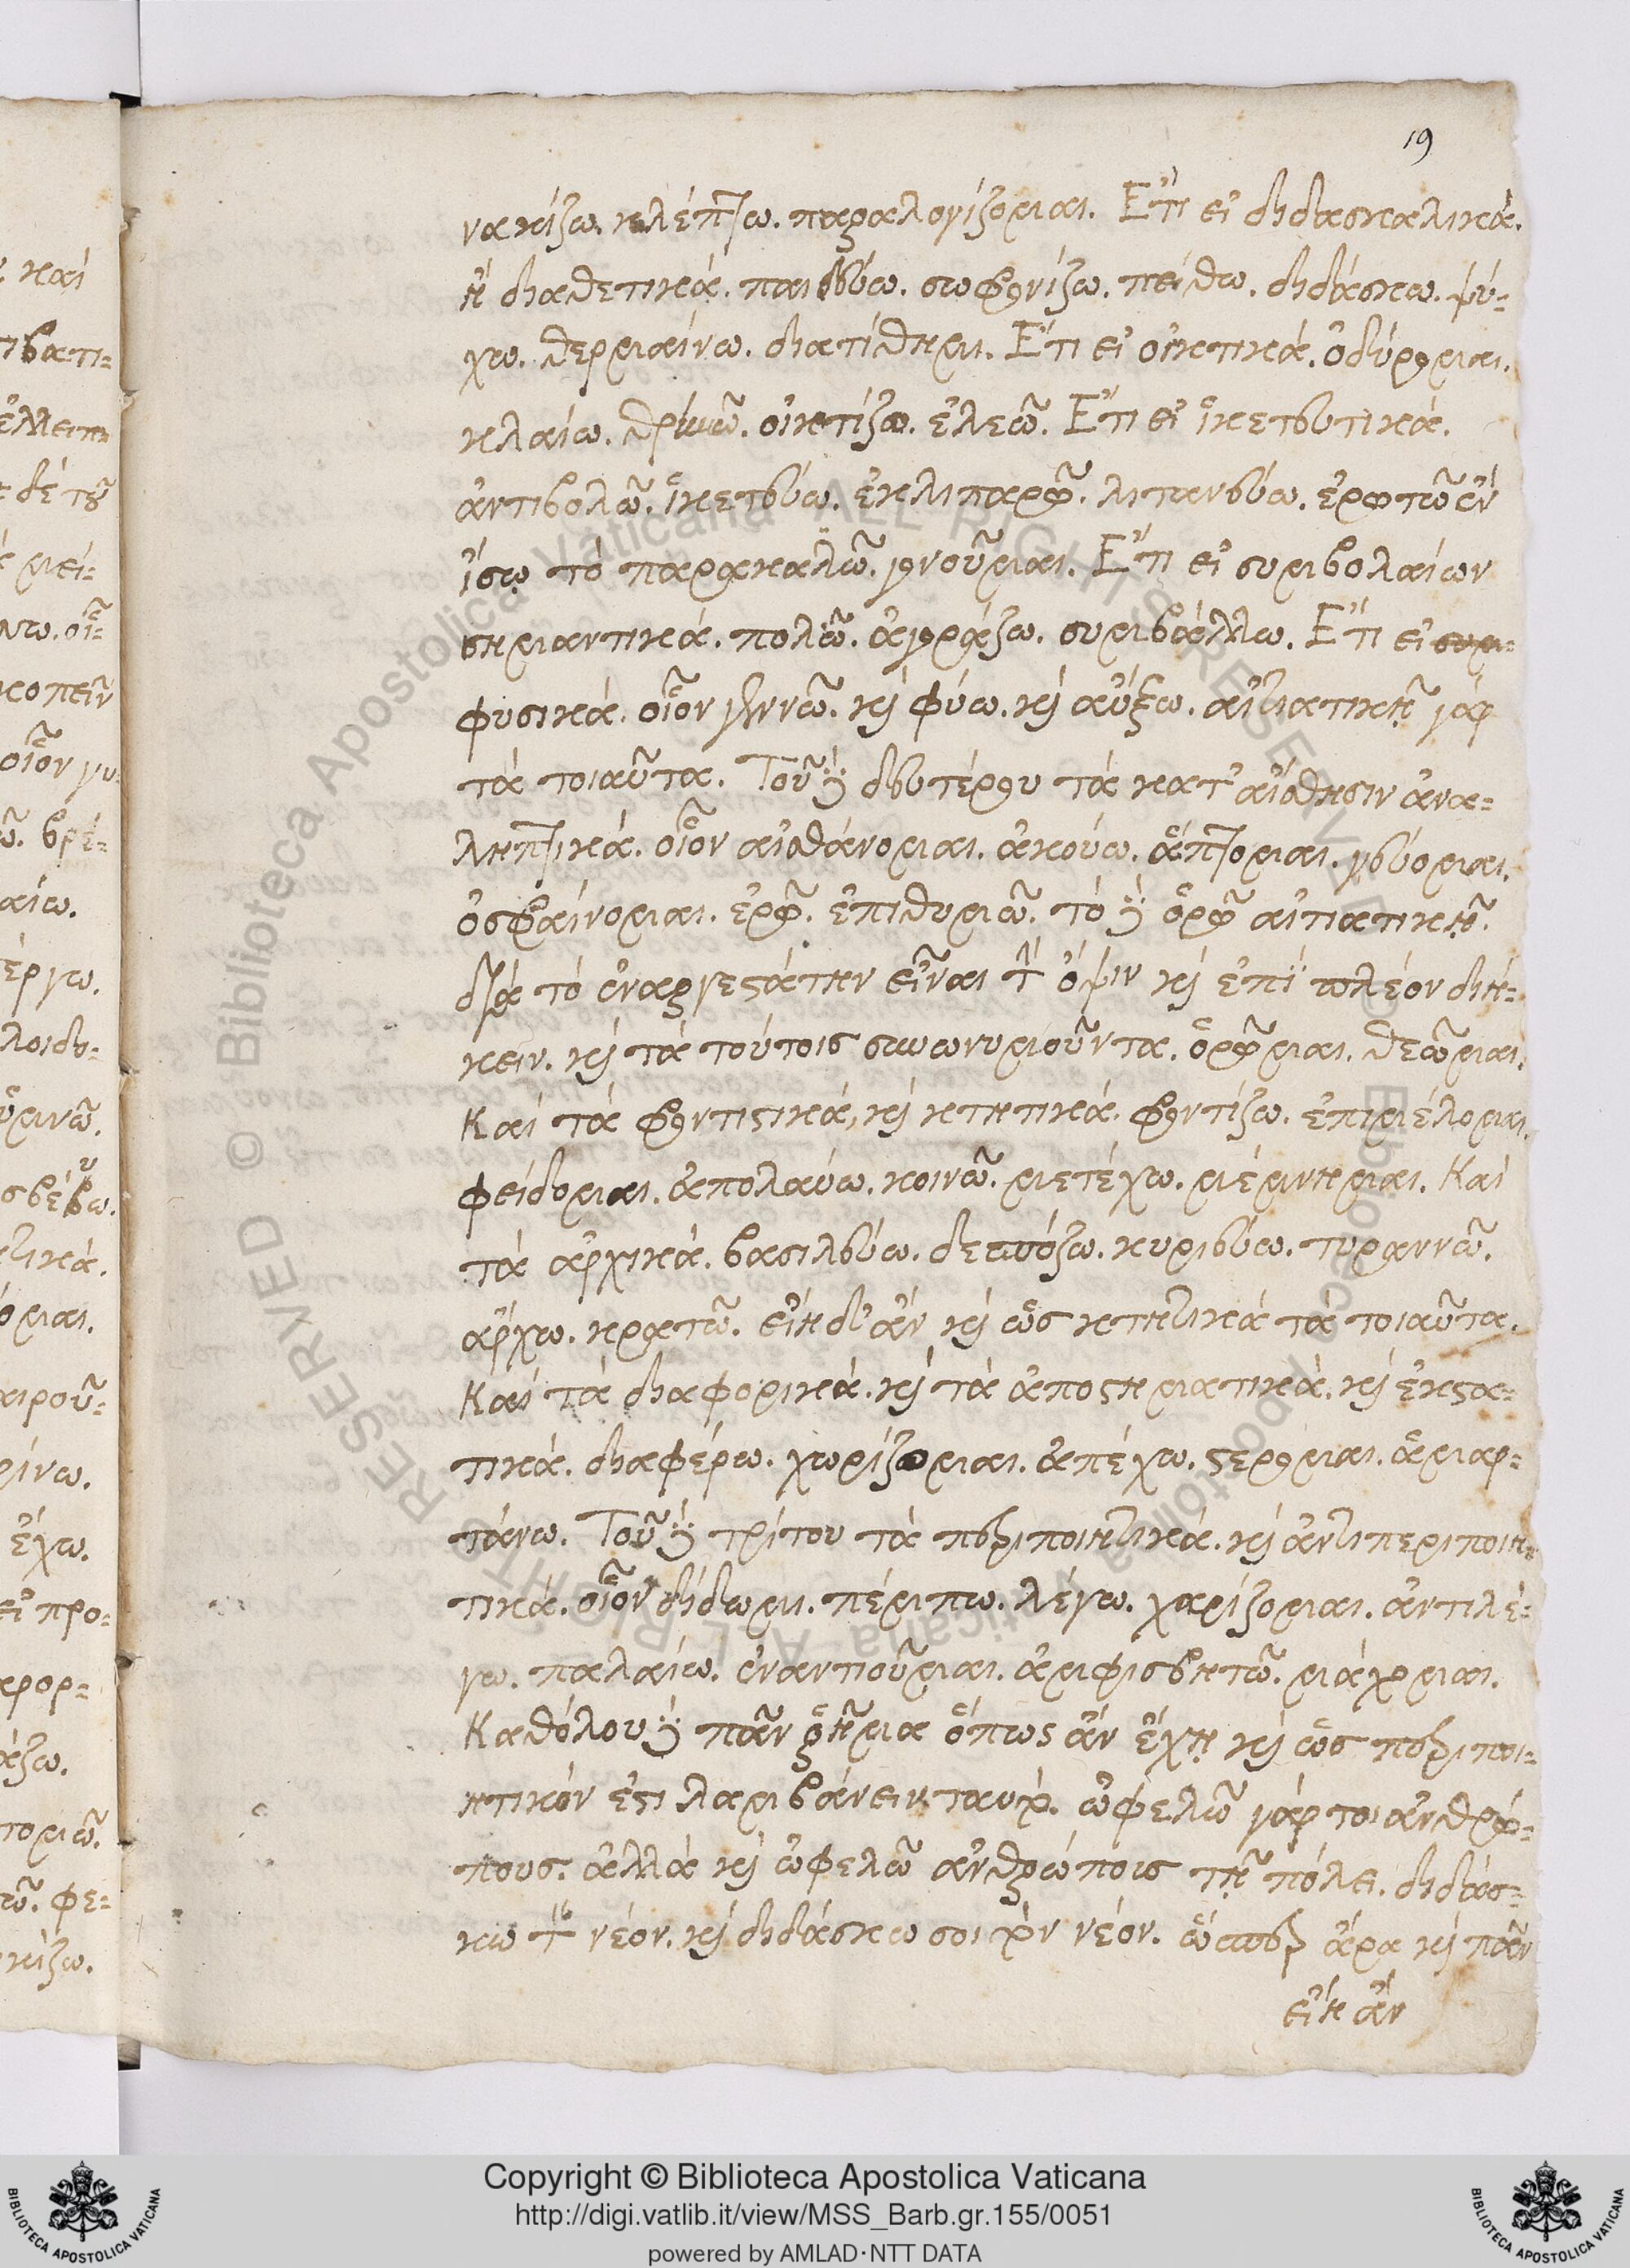 19
νακίζω. κλέπτω. παραλογίζομαι. Ἔτι εἰ διδασκαλικὰ.
ἢ διαθετικά. παιδεύω. σωφρονίζω. πείθω. διδάσκω. ψύ-
χω. θερμαίνω. διατίθημι. Ἔτι εἰ οἰκτικά. ὀδύρομαι.
κλαίω. θρηνῶ. οἰκτίζω. ἐλεῶ. Ἔτι εἰ ἱκετευτικά.
ἀντιβολῶ. ἱκετεύω. ἐκλιπαρῶ. λιτανεύω. ἐρωτῶ ἐν
ἴσῳ τὸ παρακαλῶ. γουνοῦμαι. Ἔτι εἰ συμβολαίων
σημαντικά. πολῶ. ἀγοράζω. συμβάλλω. Ἔτι εἰ συμ-
φυσικά. οἷον γεννῶ. καὶ φύω. καὶ αὔξω. αἰτιατικῇ γάρ
τὰ τοιαῦτα. Τοῦ δὲ δευτέρου τὰ κατ' αἴσθησιν ἀνα-
ληπτικά. οἷον αἰσθάνομαι. ἀκούω. ἅπτομαι. γεύομαι.
ὀσφραίνομαι. ἐρῶ. ἐπιθυμῶ. τὸ δὲ ὁρῶ αἰτιατικῇ.
διὰ τὸ ἐναργεστάτην εἶναι τὴν ὄψιν καὶ ἐπὶ πλέον διή-
κειν. καὶ τὰ τούτοις συνωνυμοῦντα. ὁρῶμαι. θεῶμαι.
Καὶ τὰ φροντιστικά, καὶ κτητικά. φροντίζω. ἐπιμέλομαι.
φείδομαι. ἀπολαύω. κοινῶ. μετέχω. μέμνημαι. Καὶ
τὰ ἀρχικά. βασιλεύω. δεσπόζω. κυριεύω. τυραννῶ.
ἄρχω. κρατῶ. εἴη δ' ἂν καὶ ὡς κτητικὰ τὰ τοιαῦτα.
Καὶ τὰ διαφορικά. καὶ τὰ ἀποστηματικά. καὶ ἐκστα-
τικά. διαφέρω. χωρίζομαι. ἀπέχω. στέρομαι. ἁμαρ-
τάνω. Τοῦ δὲ τρίτου τὰ περιποιητικά. καὶ ἀντιπεριποιη-
τικά. οἷον δίδωμι. πέμπω. λέγω. χαρίζομαι. ἀντιλέ-
γω. παλαίω. ἐναντιοῦμαι. ἀμφισβητῶ. μάχομαι.
Καθόλου δὲ πᾶν ῥῆμα ὅπως ἂν ἔχῃ καὶ ὡς περιποι-
ητικόν ἐστι λαμβάνειν ταυτὸ. ὠφελῶ γάρ τοι ἀνθρώ-
πους. ἀλλὰ καὶ ὠφελῶ ἀνθρώποις τῇ πόλει. διδάσ-
κω τὸν νέον. καὶ διδάσκω σοι τὸν νέον. ὥσπερ ἄρα καὶ πᾶν
εἴη ἂν
Copyright © Biblioteca Apostolica Vaticana
http://digi.vatlib.it/view/MSS_Barb.gr.155/0051
powered by AMLAD·NTT DATA